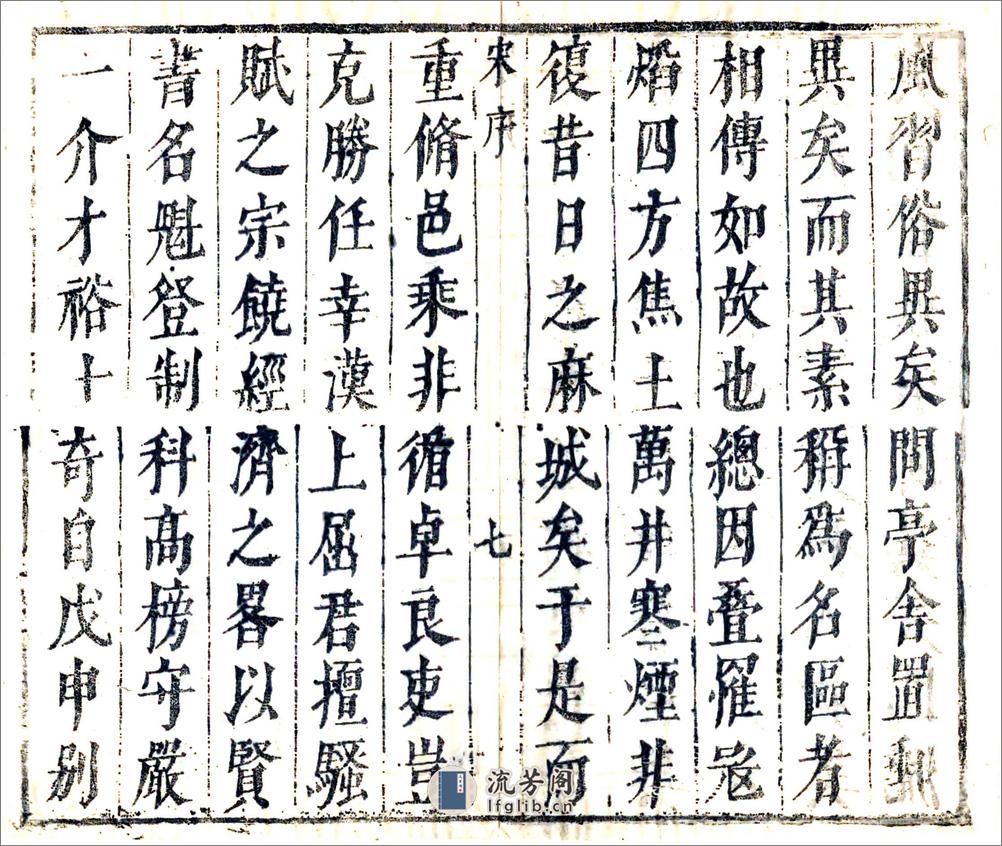 風習俗異矣問亭舍置郵
異矣而其素稱爲名區者
相傳如故也總因疊罹寇
熖四方焦土萬井寒煙非
復昔日之麻城矣于是而
宋序 七
重脩邑乘非循卓良吏豈
克勝任幸漢上屈君壇騷
賦之宗饒經濟之畧以賢
書名魁登制科高榜守嚴
一介才裕十奇自戊申别
流芳阁
lfglib.cn